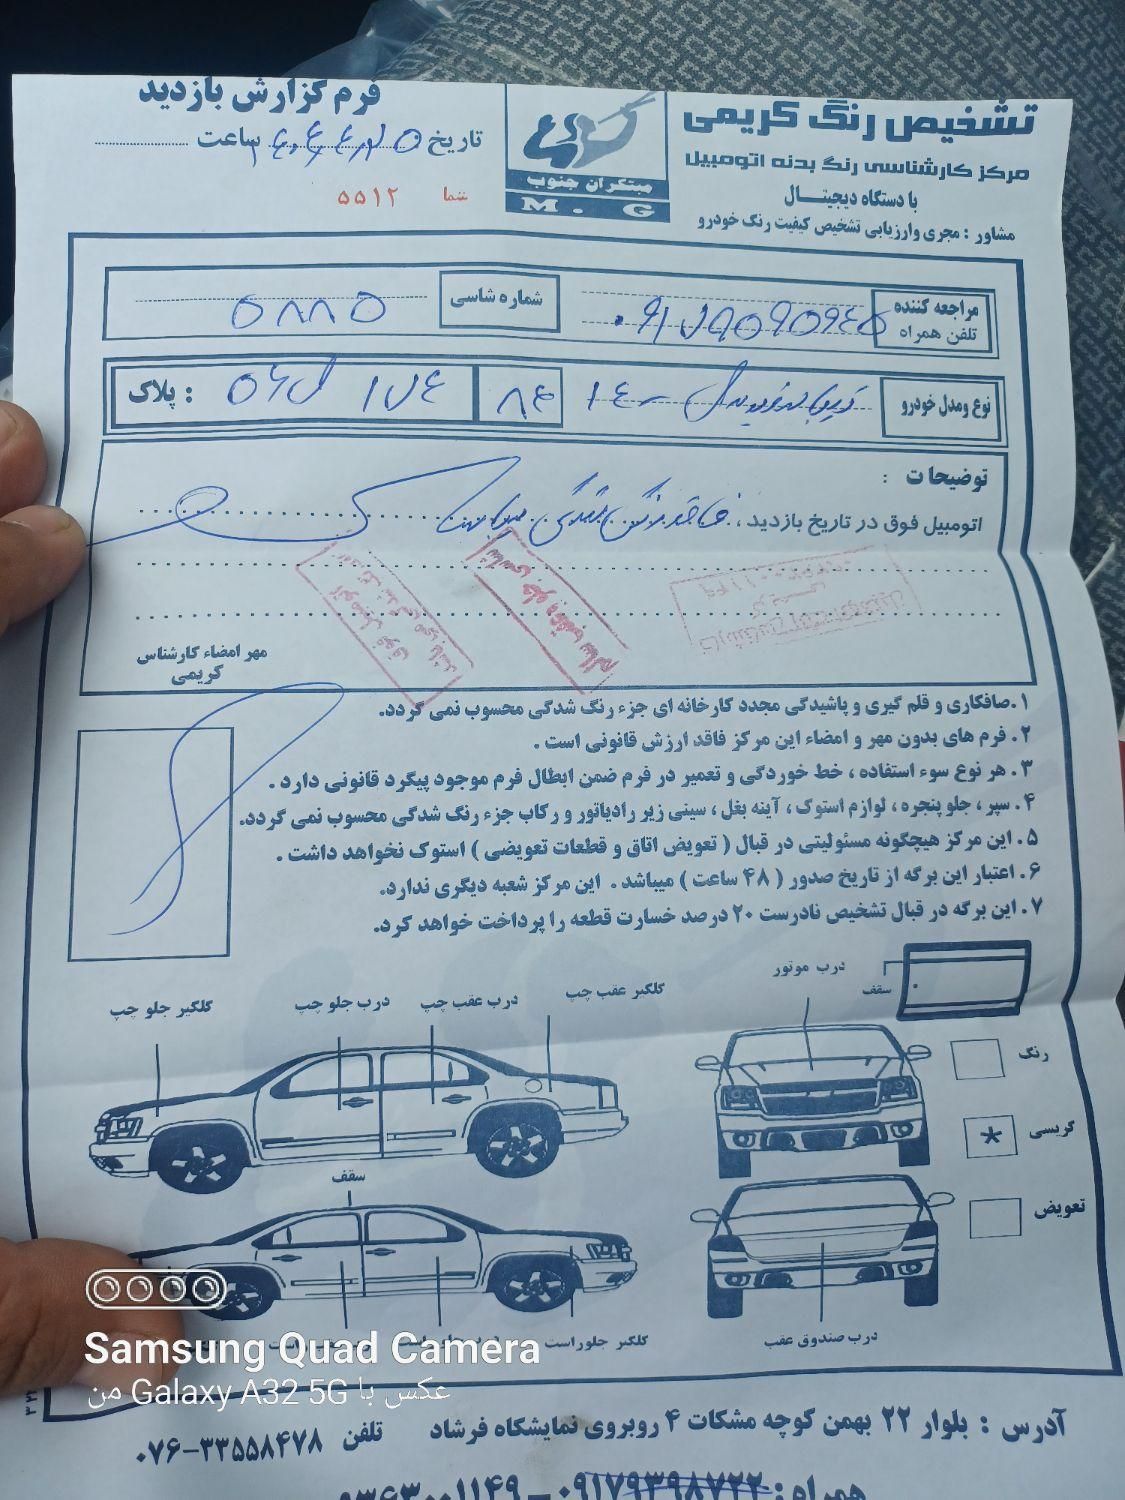 فرم گزارش بازدید
تشخیص رنگ کریمی
مرکز کارشناسی رنگ بدنه اتومبیل
با دستگاه دیجیتـــال
مشاور : مجری وارزیابی تشخیص کیفیت رنگ خودرو
مبتکران جنوب
M. G
تاریخ ساعت
شما ۵۵۱۲
مراجعه کننده
تلفن همراه
شماره شاسی ۵۸۸۵
نوع ومدل خودرو ۸۴ پلاک :
توضیحات :
اتومبیل فوق در تاریخ بازدید ، فاقد رنگ شدگی میباشد
مهر امضاء کارشناس
کریمی
۱.صافکاری و قلم گیری و پاشیدگی مجدد کارخانه ای جزء رنگ شدگی محسوب نمی گردد.
۲. فرم های بدون مهر و امضاء این مرکز فاقد ارزش قانونی است .
۳. هر نوع سوء استفاده ، خط خوردگی و تعمیر در فرم ضمن ابطال فرم موجود پیگرد قانونی دارد .
۴. سپر ، جلو پنجره ، لوازم استوک ، آینه بغل ، سینی زیر رادیاتور و رکاب جزء رنگ شدگی محسوب نمی گردد.
۵. این مرکز هیچگونه مسئولیتی در قبال ( تعویض اتاق و قطعات تعویضی ) استوک نخواهد داشت .
۶. اعتبار این برگه از تاریخ صدور ( ۴۸ ساعت ) میباشد . این مرکز شعبه دیگری ندارد.
۷. این برگه در قبال تشخیص نادرست ۲۰ درصد خسارت قطعه را پرداخت خواهد کرد.
درب موتور
سقف
گلگیر عقب چپ
درب عقب چپ
درب جلو چپ
گلگیر جلو چپ
رنگ
گریسی *
تعویض
سقف
درب صندوق عقب
گلگیر جلو راست
Samsung Quad Camera
عکس با Galaxy A32 5G من
آدرس : بلوار ۲۲ بهمن کوچه مشکات ۴ روبروی نمایشگاه فرشاد تلفن ۰۷۶-۳۳۵۵۸۴۷۸
همراه : ۰۹۱۷۹۳۹۸۷۲۲ - ۰۹۳۶۳۰۰۱۱۴۹